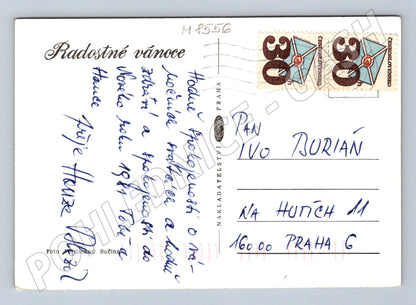 M 8556
Radostné vánoce
Hodně spokojenosti o vá-
nočních svátcích a hodně
zdraví a spokojenosti do
Nového roku 1981 Tobě a
Hance přeje Honza
Foto
NAKLADATELSTVÍ PRAHA
30
ČESKOSLOVENSKO
30
ČESKOSLOVENSKO
PAN
IVO BURIÁN
NA HUTÍCH 11
160 00 PRAHA 6
POHLEDNICE - CZECH